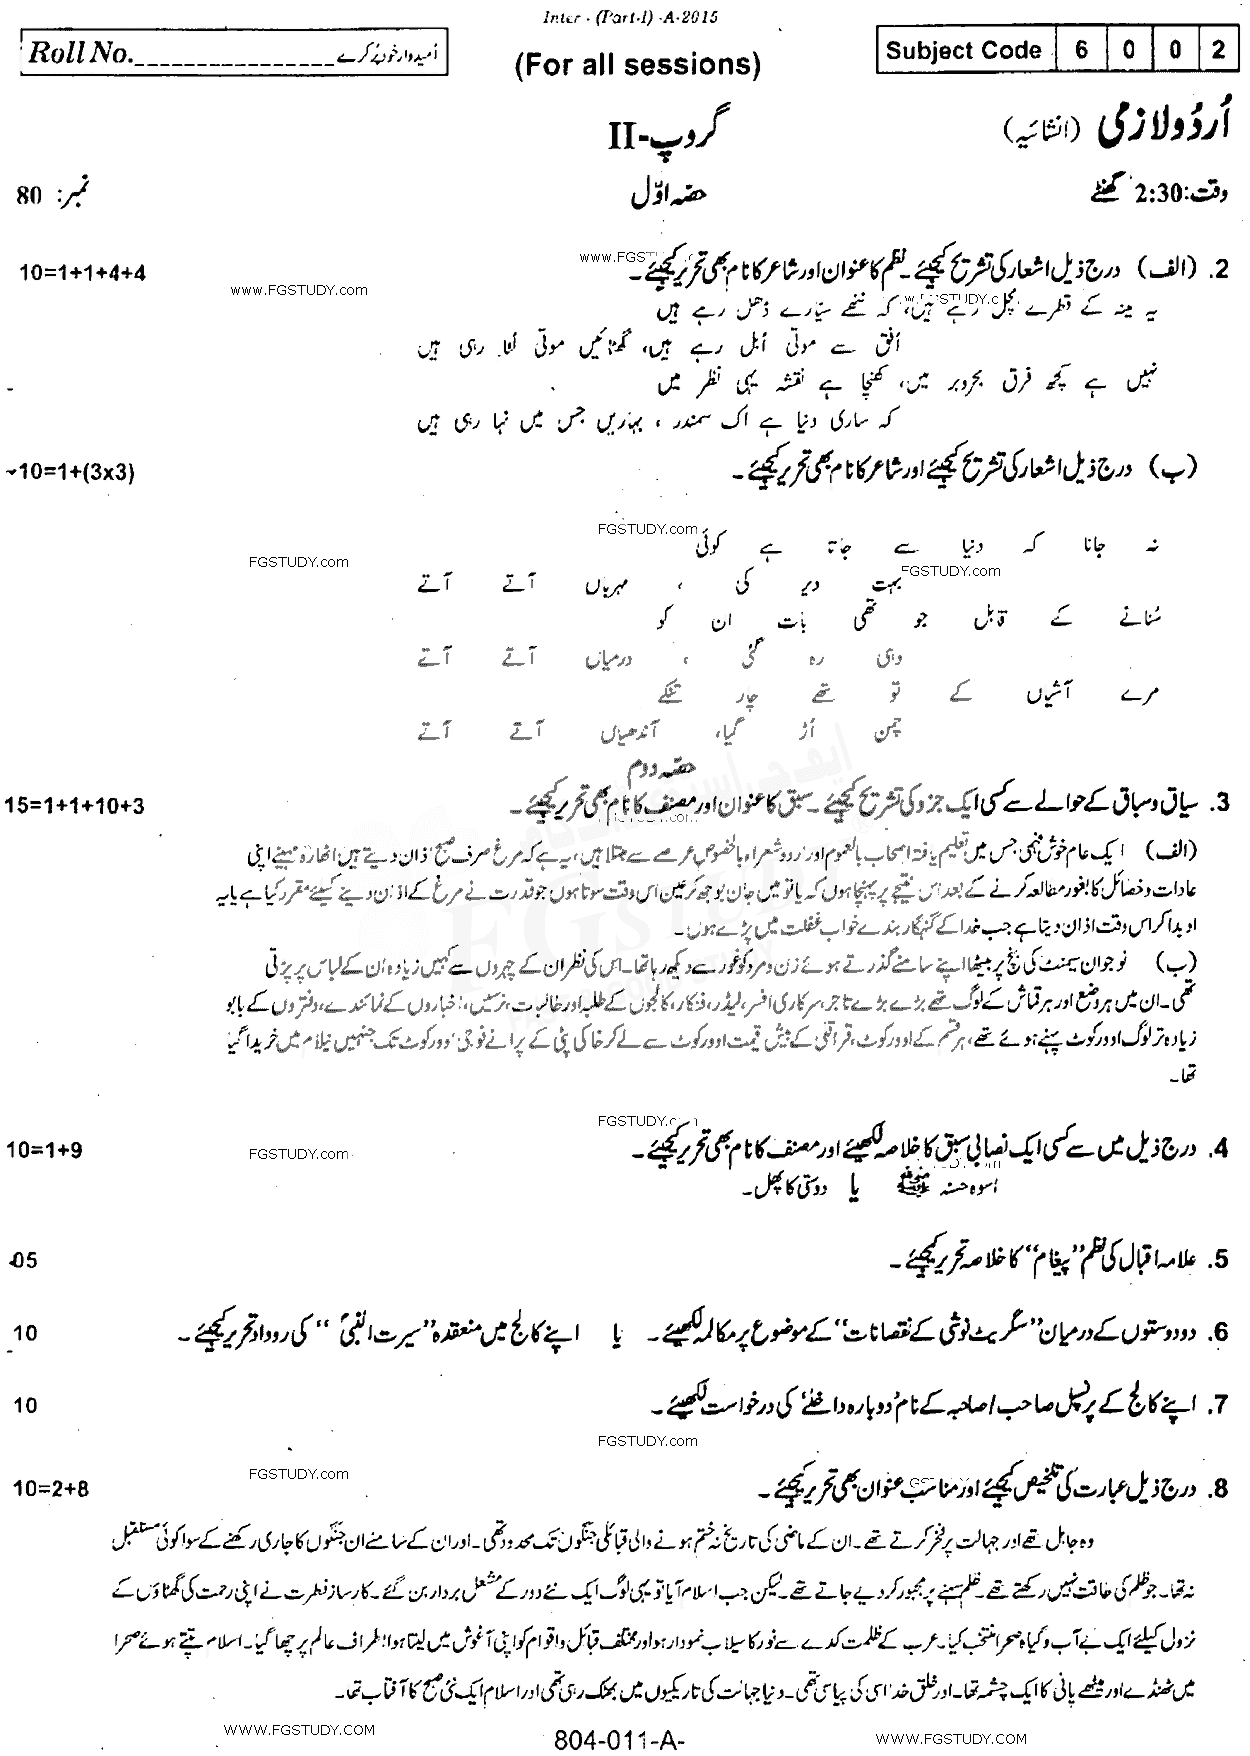 Inter - (Part-I) -A-2015
Roll No.________________ اُمیدوار خود پُر کرے
(For all sessions)
Subject Code 6 0 0 2
اُردو لازمی (انشائیہ)
گروپ-II
وقت: 2:30 گھنٹے
حصہ اوّل
نمبر: 80
2. (الف) درج ذیل اشعار کی تشریح کیجئے۔ نظم کا عنوان اور شاعر کا نام بھی تحریر کیجئے۔ 10=1+1+4+4
www.FGSTUDY.com
یہ مینہ کے قطرے مچل رہے ہیں، کہ ننھے سیارے ڈھل رہے ہیں
اُفق سے موتی اُبل رہے ہیں، گھٹائیں موتی لٹا رہی ہیں
نہیں ہے کچھ فرق بحروبر میں، کھنچا ہے نقشہ یہی نظر میں
کہ ساری دنیا ہے اک سمندر، بہاریں جس میں نہا رہی ہیں
(ب) درج ذیل اشعار کی تشریح کیجئے اور شاعر کا نام بھی تحریر کیجئے۔ 10=1+(3x3)
FGSTUDY.com
نہ جانا کہ دنیا سے جاتا ہے کوئی
FGSTUDY.com
FGSTUDY.com
بہت دیر کی ، مہرباں آتے آتے
سُنانے کے قابل جو تھی بات ان کو
وہی رہ گئی ، درمیاں آتے آتے
مرے آشیاں کے تو تھے چار تنکے
چمن اُڑ گیا، آندھیاں آتے آتے
حصہ دوم
3. سیاق و سباق کے حوالے سے کسی ایک جزو کی تشریح کیجئے۔ سبق کا عنوان اور مصنف کا نام بھی تحریر کیجئے۔ 15=1+1+10+3
(الف) ایک عام خوش فہمی جس میں تعلیم یافتہ اصحاب بالعموم اور اردو شعراء بالخصوص عرصے سے مبتلا ہیں، یہ ہے کہ مرغ صرف صبح اذان دیتے ہیں اٹھارہ مہینے اپنی
عادات و خصائل کا بغور مطالعہ کرنے کے بعد اس نتیجے پر پہنچا ہوں کہ یا تو میں جان بوجھ کر عین اس وقت سوتا ہوں جو قدرت نے مرغ کے اذان دینے کیلئے مقرر کیا ہے یا یہ
اوبدا کر اس وقت اذان دیتا ہے جب خدا کے گنہگار بندے خواب غفلت میں پڑے ہوں۔
(ب) نوجوان سیمنٹ کی بنچ پر بیٹھا اپنے سامنے گذرتے ہوئے زن و مرد کو غور سے دیکھ رہا تھا۔ اس کی نظر ان کے چہروں سے کہیں زیادہ ان کے لباس پر پڑتی
تھی۔ ان میں ہر وضع اور ہر قماش کے لوگ تھے بڑے بڑے تاجر، سرکاری افسر، لیڈر، فنکار، کالجوں کے طلبہ اور طالبات، نرسیں، اخباروں کے نمائندے، دفتروں کے بابو
زیادہ تر لوگ اوورکوٹ پہنے ہوئے تھے، ہر قسم کے اوورکوٹ، قراقلی کے بیش قیمت اوورکوٹ سے لے کر خاکی پٹی کے پرانے فوجی اوورکوٹ تک جنہیں نیلام میں خریدا گیا
تھا۔
FGSTUDY.com
4. درج ذیل میں سے کسی ایک نصابی سبق کا خلاصہ لکھیئے اور مصنف کا نام بھی تحریر کیجئے۔ 10=1+9
FGSTUDY.com
اسوہ حسنہ ﷺ یا دوستی کا پھل۔
5. علامہ اقبال کی نظم "پیغام" کا خلاصہ تحریر کیجئے۔ 05
6. دو دوستوں کے درمیان "سگریٹ نوشی کے نقصانات" کے موضوع پر مکالمہ لکھیئے۔ یا اپنے کالج میں منعقدہ "سیرت النبیؐ" کی روداد تحریر کیجئے۔ 10
7. اپنے کالج کے پرنسپل صاحب/صاحبہ کے نام 'دوبارہ داخلے' کی درخواست لکھیئے۔ 10
FGSTUDY.com
FGSTUDY.com
8. درج ذیل عبارت کی تلخیص کیجئے اور مناسب عنوان بھی تحریر کیجئے۔ 10=2+8
وہ جاہل تھے اور جہالت پر فخر کرتے تھے۔ ان کے ماضی کی تاریخ نہ ختم ہونے والی قبائلی جنگوں تک محدود تھی۔ اور ان کے سامنے ان جنگوں کا جاری رکھنے کے سوا کوئی مستقبل
نہ تھا۔ جو ظلم کی طاقت نہیں رکھتے تھے۔ ظلم سہنے پر مجبور کر دیے جاتے تھے۔ لیکن جب اسلام آیا تو یہی لوگ ایک نئے دور کے مشعل بردار بن گئے۔ کارساز فطرت نے اپنی رحمت کی گھٹاؤں کے
نزول کیلئے ایک بے آب و گیاہ صحرا منتخب کیا۔ عرب کے ظلمت کدے سے نور کا سیلاب نمودار ہوا اور مختلف قبائل و اقوام کو اپنی آغوش میں لیتا ہوا اطراف عالم پر چھا گیا۔ اسلام تپتے ہوئے صحرا
میں ٹھنڈے اور میٹھے پانی کا ایک چشمہ تھا۔ اور خلق خدا اسی کی پیاسی تھی۔ دنیا جہالت کی تاریکیوں میں بھٹک رہی تھی اور اسلام ایک نئی صبح کا آفتاب تھا۔
WWW.FGSTUDY.COM
804-011-A-
WWW.FGSTUDY.COM